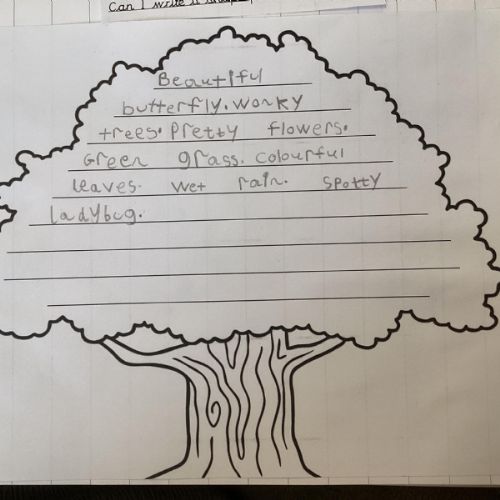 Can I write a
Beautiful
butterfly. wonky
trees. Pretty flowers.
Green grass. colourful
leaves. wet rain. spotty
ladybug.